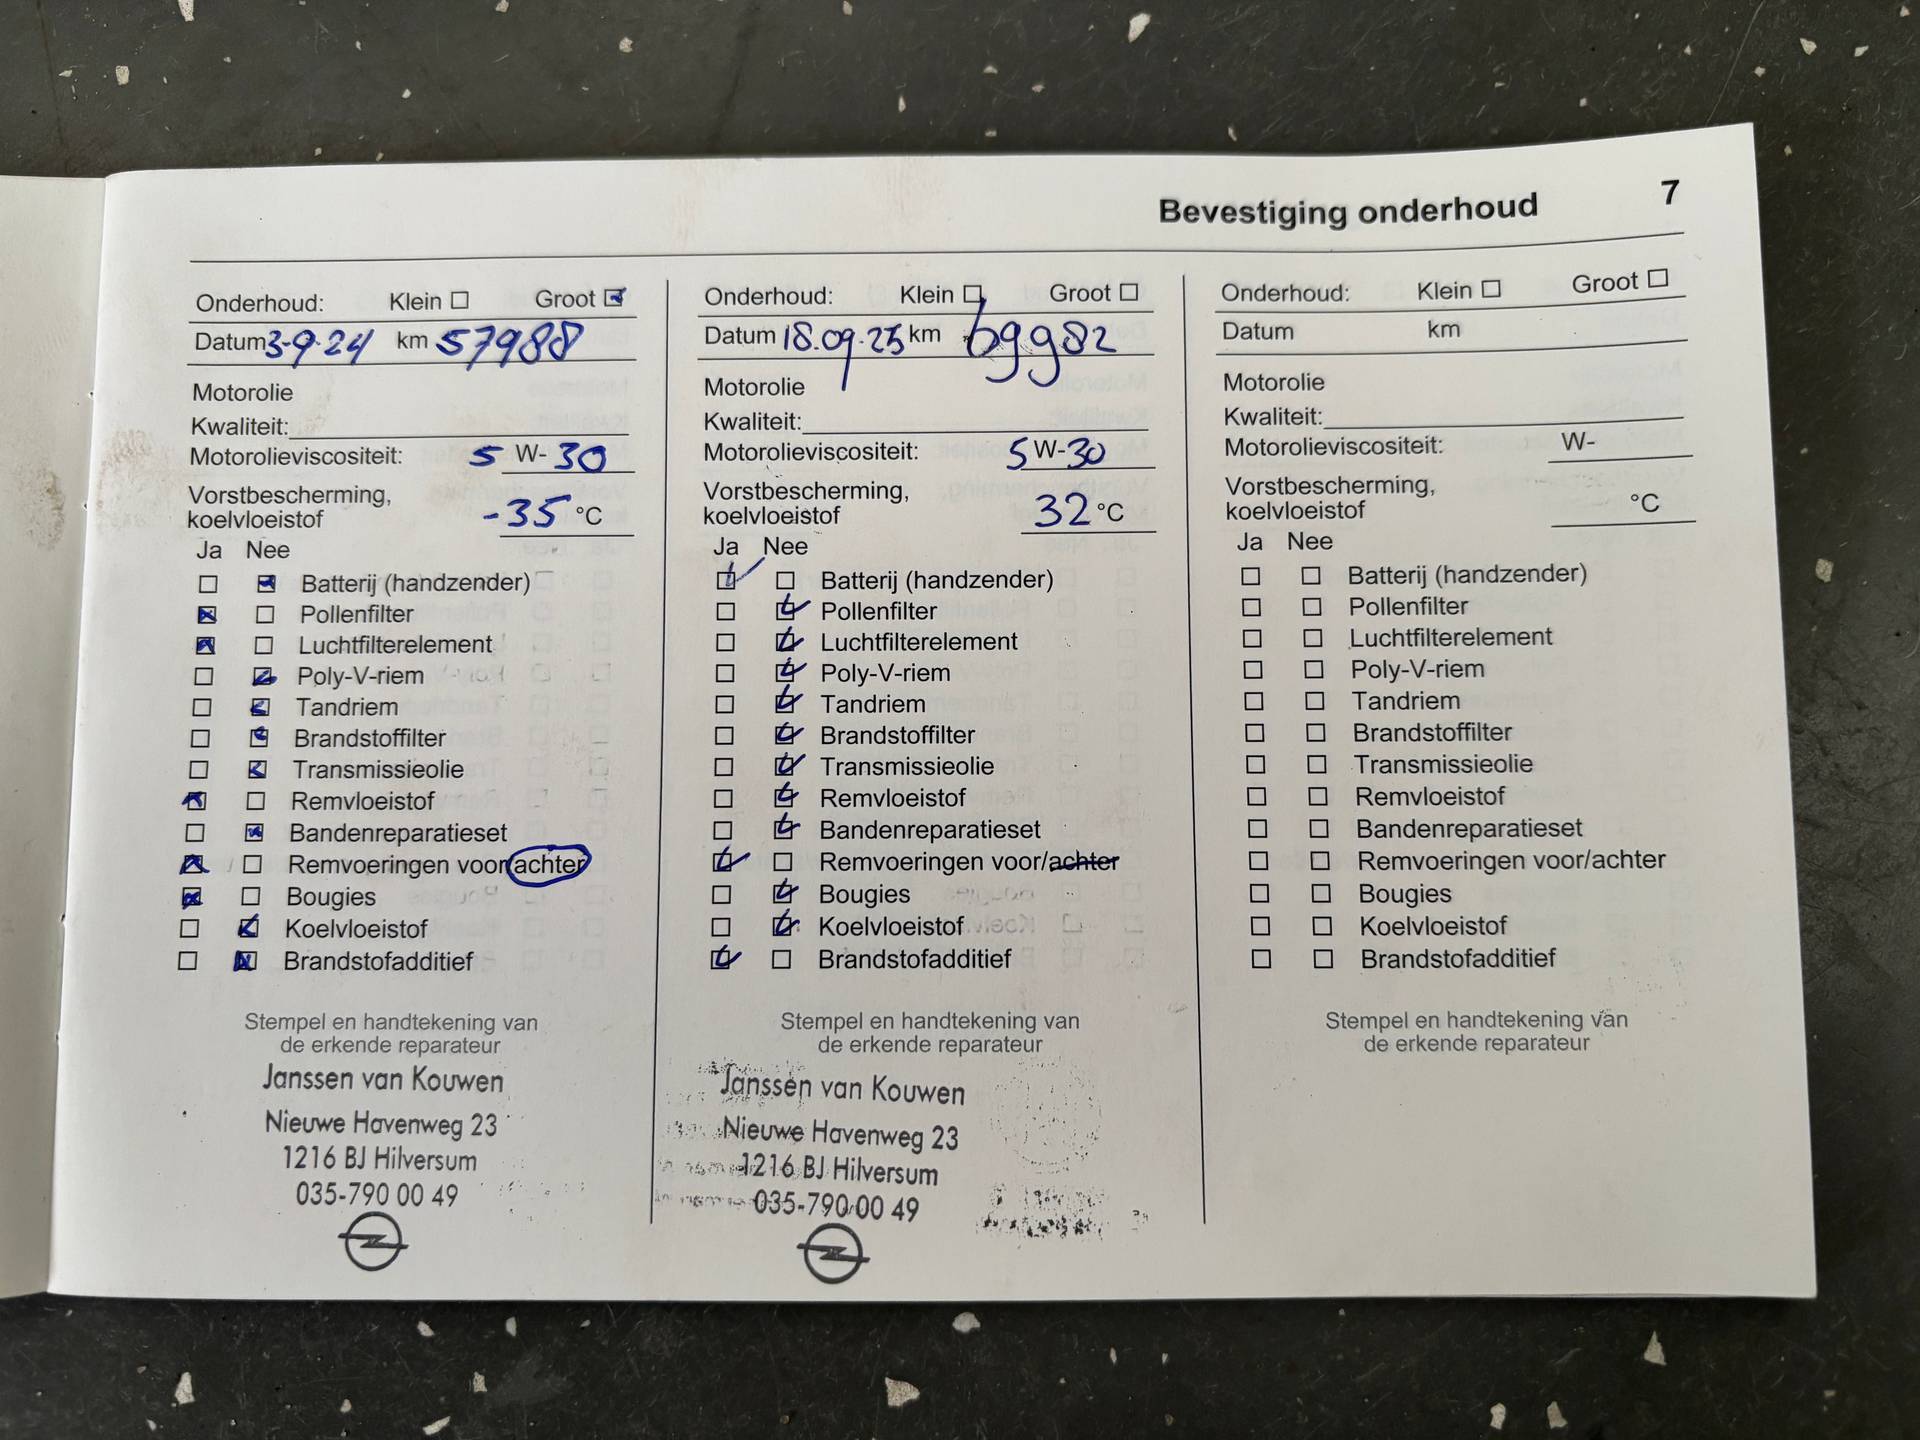 Bevestiging onderhoud 7
Onderhoud: Klein ☐ Groot ☑
Datum 3-9-24 km 57988
Motorolie
Kwaliteit:
Motorolieviscositeit: 5 W-30
Vorstbescherming,
koelvloeistof -35 °C
Ja Nee
☐ ☑ Batterij (handzender)
☑ ☐ Pollenfilter
☑ ☐ Luchtfilterelement
☐ ☑ Poly-V-riem
☐ ☑ Tandriem
☐ ☑ Brandstoffilter
☐ ☑ Transmissieolie
☑ ☐ Remvloeistof
☐ ☑ Bandenreparatieset
☑ ☐ Remvoeringen voor/achter
☑ ☐ Bougies
☐ ☑ Koelvloeistof
☐ ☑ Brandstofadditief
Stempel en handtekening van
de erkende reparateur
Janssen van Kouwen
Nieuwe Havenweg 23
1216 BJ Hilversum
035-790 00 49
Onderhoud: Klein ☐ Groot ☐
Datum 18.09.25 km 69982
Motorolie
Kwaliteit:
Motorolieviscositeit: 5 W-30
Vorstbescherming,
koelvloeistof 32 °C
Ja Nee
☑ ☐ Batterij (handzender)
☐ ☑ Pollenfilter
☐ ☑ Luchtfilterelement
☐ ☑ Poly-V-riem
☐ ☑ Tandriem
☐ ☑ Brandstoffilter
☐ ☑ Transmissieolie
☐ ☑ Remvloeistof
☐ ☑ Bandenreparatieset
☑ ☐ Remvoeringen voor/achter
☐ ☑ Bougies
☐ ☑ Koelvloeistof
☑ ☐ Brandstofadditief
Stempel en handtekening van
de erkende reparateur
Janssen van Kouwen
Nieuwe Havenweg 23
1216 BJ Hilversum
035-790 00 49
Onderhoud: Klein ☐ Groot ☐
Datum km
Motorolie
Kwaliteit:
Motorolieviscositeit: W-
Vorstbescherming,
koelvloeistof °C
Ja Nee
☐ ☐ Batterij (handzender)
☐ ☐ Pollenfilter
☐ ☐ Luchtfilterelement
☐ ☐ Poly-V-riem
☐ ☐ Tandriem
☐ ☐ Brandstoffilter
☐ ☐ Transmissieolie
☐ ☐ Remvloeistof
☐ ☐ Bandenreparatieset
☐ ☐ Remvoeringen voor/achter
☐ ☐ Bougies
☐ ☐ Koelvloeistof
☐ ☐ Brandstofadditief
Stempel en handtekening van
de erkende reparateur